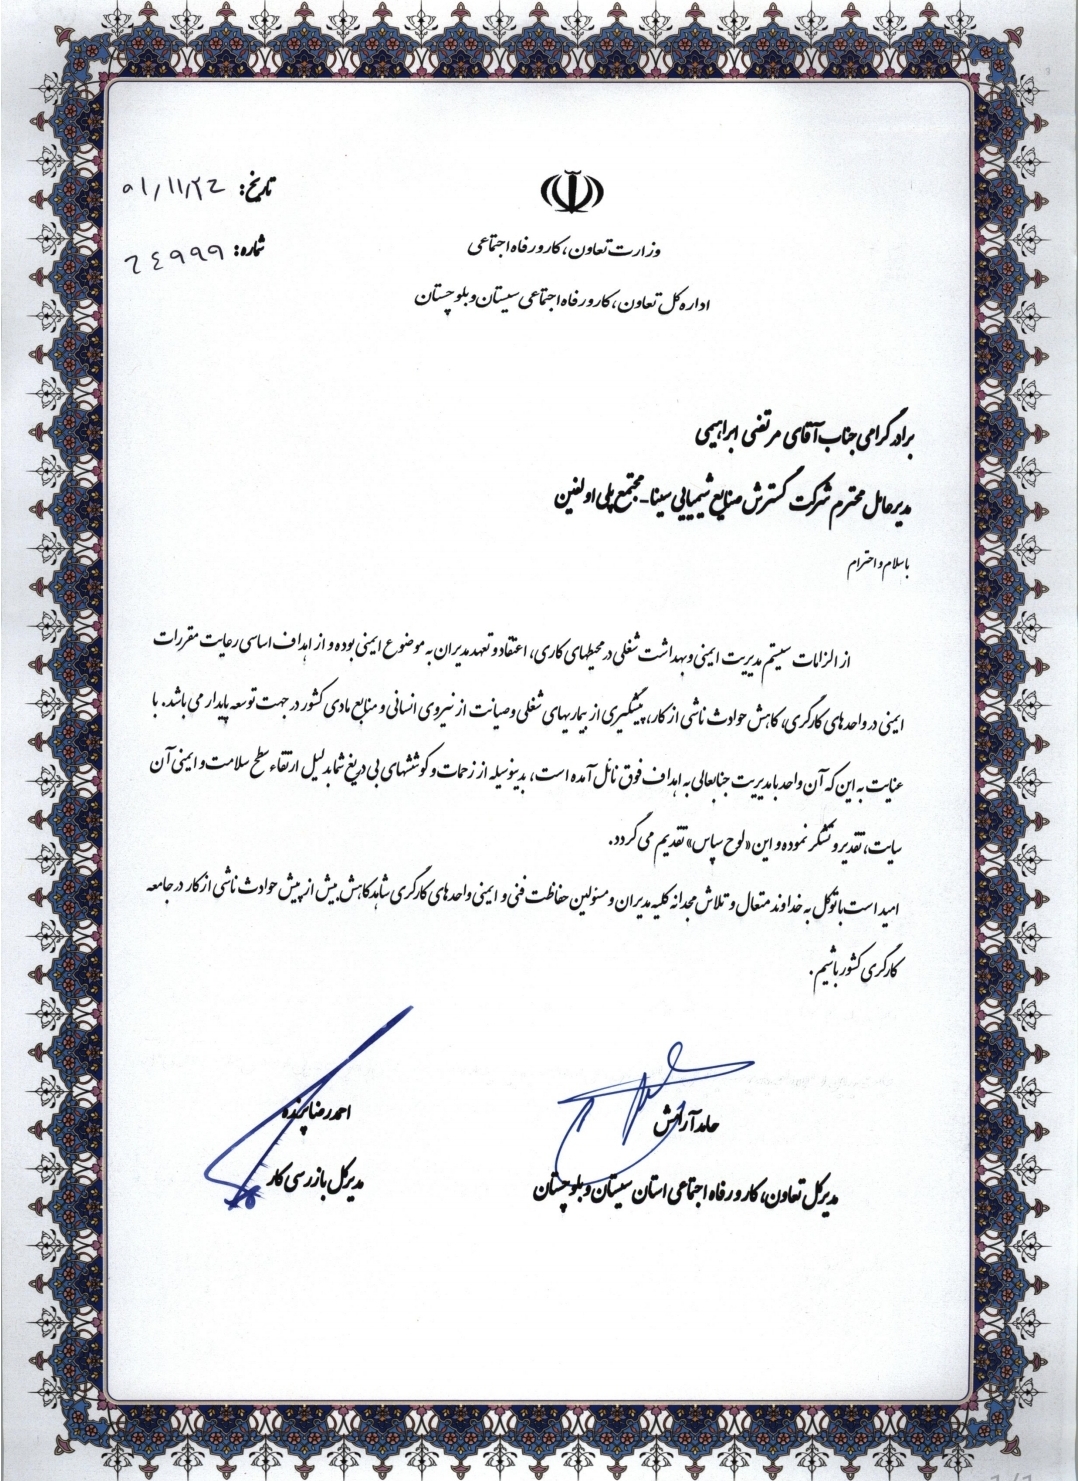 تاریخ: ۰۱/۱۱/۲۲
شماره: ۲۴۹۹۹
وزارت تعاون، کار و رفاه اجتماعی
اداره کل تعاون، کار و رفاه اجتماعی سیستان و بلوچستان
برادر گرامی جناب آقای مرتضی ابراهیمی
مدیرعامل محترم شرکت گسترش صنایع شیمیایی سینا-مجتمع پلی اولفین
با سلام و احترام
از الزامات سیستم مدیریت ایمنی و بهداشت شغلی در محیطهای کاری، اعتقاد و تعهد مدیران به موضوع ایمنی بوده و از اهداف اساسی رعایت مقررات
ایمنی در واحدهای کارگری، کاهش حوادث ناشی از کار، پیشگیری از بیماریهای شغلی و صیانت از نیروی انسانی و منابع مادی کشور در جهت توسعه پایدار می باشد. با
عنایت به این که آن واحد با مدیریت جنابعالی به اهداف فوق نائل آمده است، بدینوسیله از زحمات و کوششهای بی دریغ شما بدلیل ارتقاء سطح سلامت و ایمنی آن
سایت، تقدیر و تشکر نموده و این «لوح سپاس» تقدیم می گردد.
امید است با توکل به خداوند متعال و تلاش مجدانه کلیه مدیران و مسئولین حفاظت فنی و ایمنی واحدهای کارگری شاهد کاهش بیش از پیش حوادث ناشی از کار در جامعه
کارگری کشور باشیم.
حامد آرامش
مدیرکل تعاون، کار و رفاه اجتماعی استان سیستان و بلوچستان
احمدرضا پرنده
مدیرکل بازرسی کار